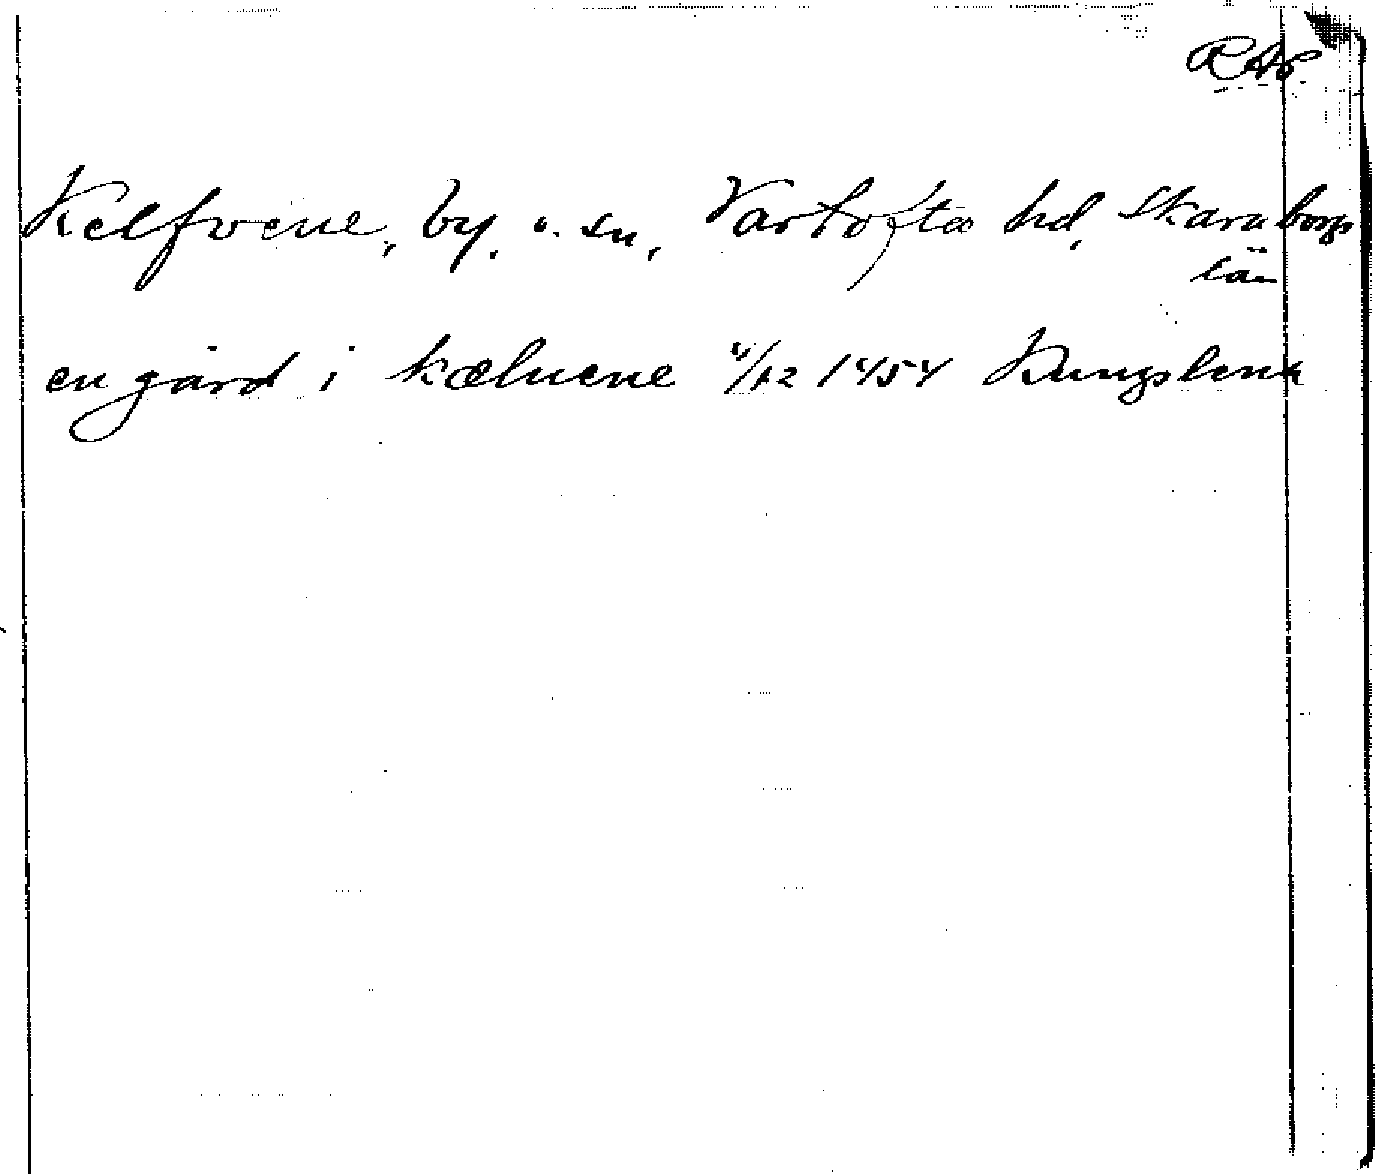 RAP
Kelfvene, by. o. sn, Vartofta hd, Skaraborgs
län
en gård i kæluene 4/12 1454 Kungslena